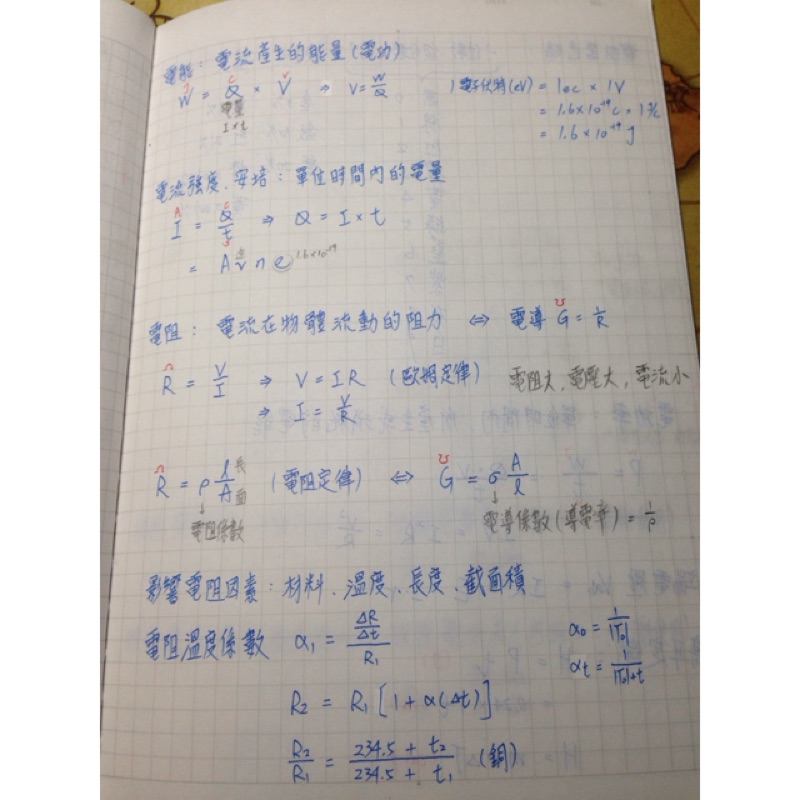 電能：電流產生的能量(電功)
J C V
W = Q × V ⇒ V = W/Q
電量
I×t
1電子伏特(eV) = 1ec × 1V
= 1.6×10⁻¹⁹c × 1 J/c
= 1.6×10⁻¹⁹ J
電流強度、安培：單位時間內的電量
A C
I = Q/t ⇒ Q = I×t
S
= A v n e 1.6×10⁻¹⁹
電阻：電流在物體流動的阻力 ⇔ 電導 G = 1/R
Ω
R = V/I ⇒ V = IR (歐姆定律) 電阻大，電壓大，電流小
⇒ I = V/R
Ω ℧
R = ρ l/A (電阻定律) ⇔ G = σ A/l
長
面
↓ ↓
電阻係數 電導係數(導電率) = 1/ρ
影響電阻因素：材料、溫度、長度、截面積
電阻溫度係數 α₁ = (ΔR/Δt)/R₁
α₀ = 1/|T₀|
αt = 1/(|T₀|+t)
R₂ = R₁[1+α(Δt)]
R₂/R₁ = (234.5 + t₂)/(234.5 + t₁) (銅)